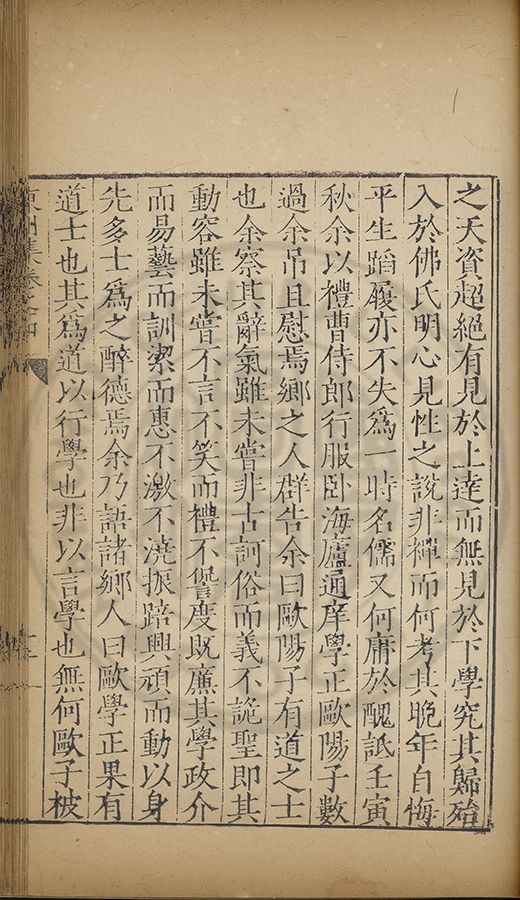 之天資超絕有見於上達而無見於下學究其歸殆
入於佛氏明心見性之說非禪而何考其晚年自悔
平生蹈履亦不失爲一時名儒又何庸於醜詆壬寅
秋余以禮曹侍郎行服臥海廬通庠學正歐陽子數
過余吊且慰焉鄉之人群告余曰歐陽子有道之士
也余察其辭氣雖未嘗非古訶俗而義不詭聖即其
動容雖未嘗不言不笑而禮不諐度既廉其學政介
而易藝而訓潔而惠不激不澆振踣興頑而動以身
先多士爲之醉德焉余乃語諸鄉人曰歐學正果有
道士也其爲道以行學也非以言學也無何歐子被
東川集卷之四